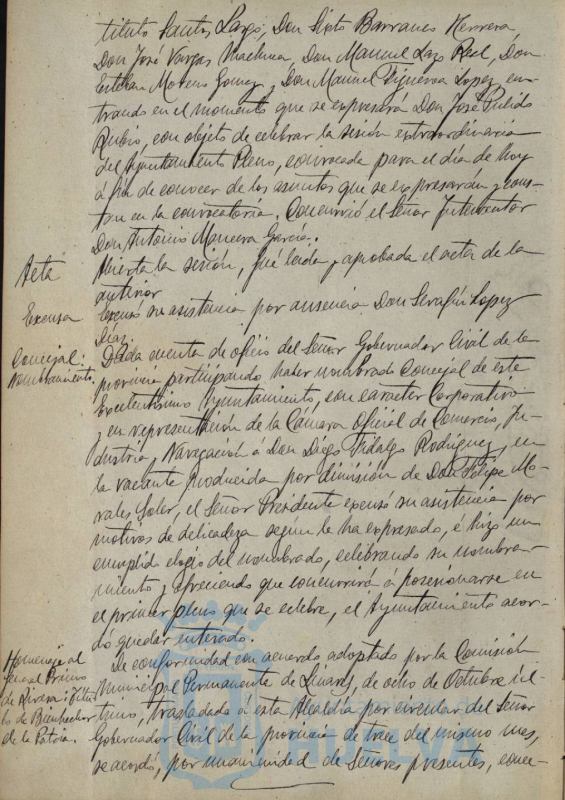 tituto Santos Largo, Don Sixto Barranco Herrera,
Don José Vargas Machuca, Don Manuel Lazo Real, Don
Esteban Moreno Gomez y Don Manuel Figueroa Lopez, en-
trando en el momento que se expresará Don José Pulido
Rubio, con objeto de celebrar la sesión extraordinaria
del Ayuntamiento Pleno, convocada para el día de hoy
á fin de conocer de los asuntos que se expresarán y cons-
tan en la convocatoria. Concurrió el Señor Interventor
Don Antonio Manceva García.
Acta
Abierta la sesión, fué leída y aprobada el acta de la
anterior
Excusa
Excusó su asistencia por ausencia Don Serafín Lopez
Díaz.
Concejal.
Nombramiento.
Dada cuenta de oficio del Señor Gobernador Civil de la
provincia participando haber nombrado Concejal de este
Excelentísimo Ayuntamiento, con caracter Corporativo
y en representación de la Cámara Oficial de Comercio, In-
dustria y Navegación á Don Diego Fidalgo Rodriguez, en
la vacante producida por dimisión de Don Felipe Mo-
rales Soler, el Señor Presidente excusó su asistencia por
motivos de delicadeza según le ha expresado, é hizo un
cumplido elogio del nombrado, celebrando su nombra-
miento y ofreciendo que concurrirá á posesionarse en
el primer pleno que se celebre, el Ayuntamiento acor-
dó quedar enterado.
Homenaje al
General Primo
de Rivera: Títu-
lo de Bienhechor
de la Patria.
De conformidad con acuerdo adoptado por la Comisión
Municipal Permanente de Linares, de ocho de Octubre úl-
timo, trasladado á esta Alcaldía por circular del Señor
Gobernador Civil de la provincia de trece del mismo mes,
se acordó, por unanimidad de Señores presentes, conce-
HUELVA